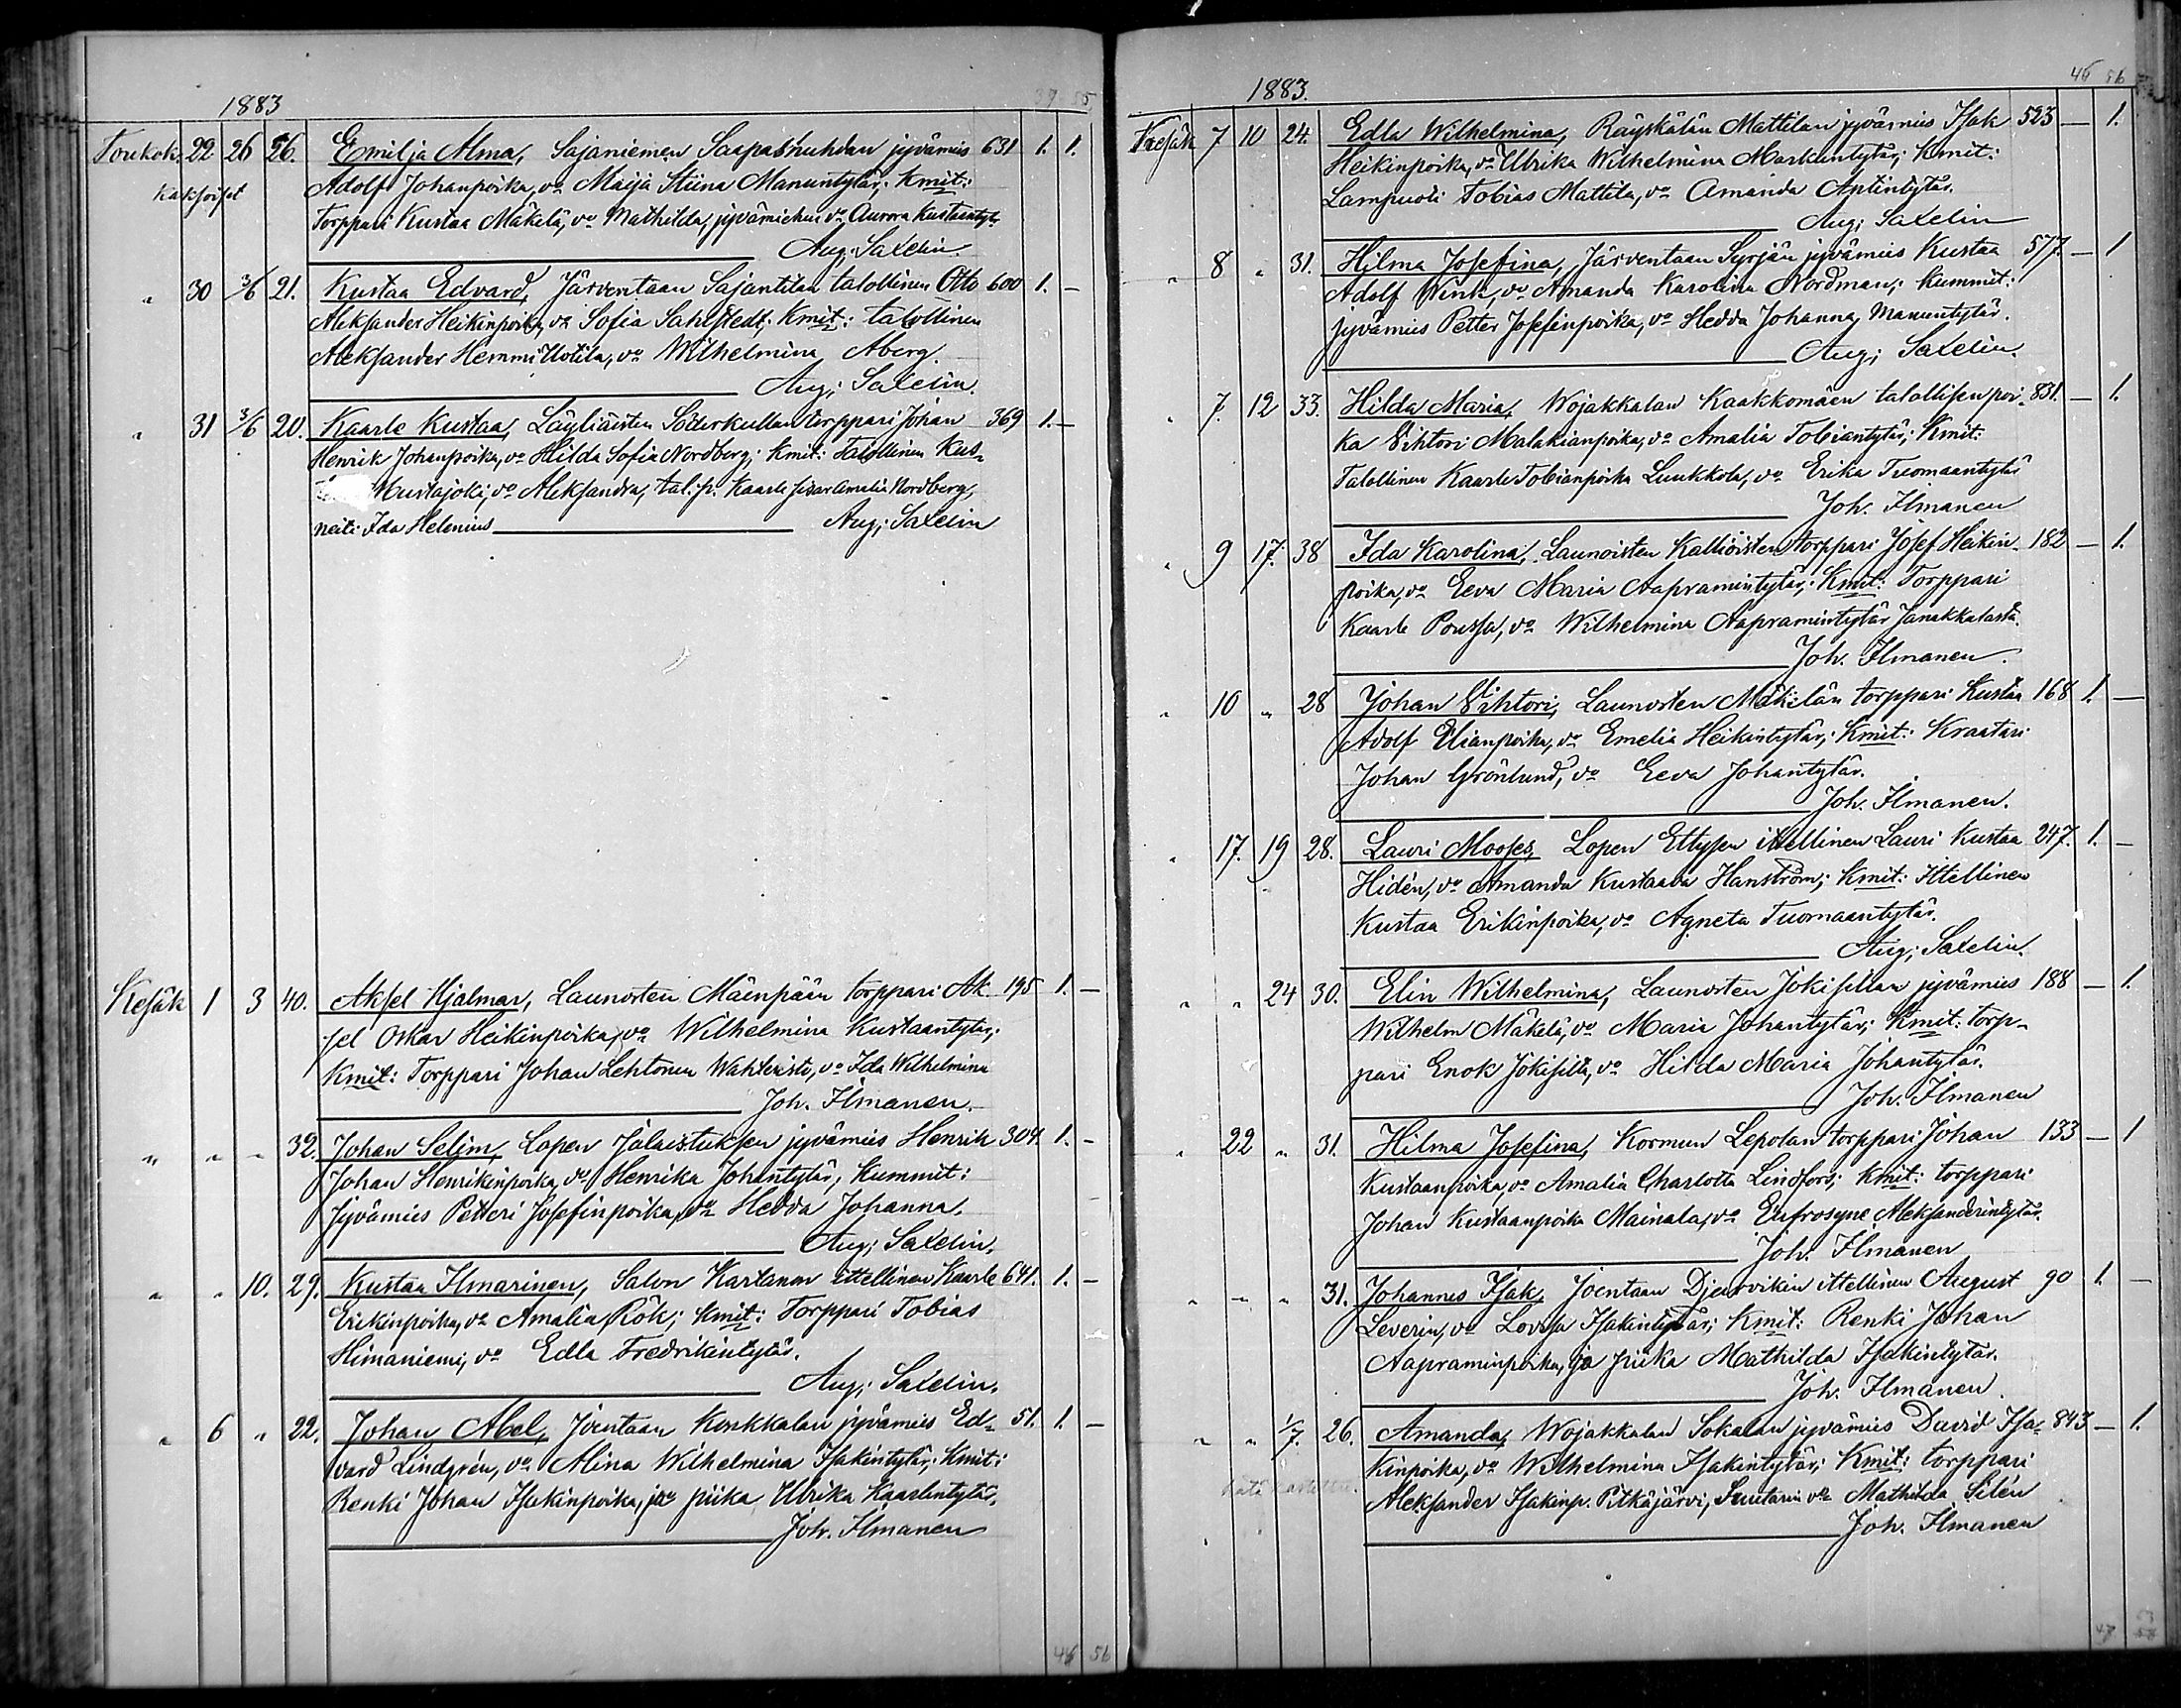 1883
39 55
Toukok. 22 26 26. Emilja Alma, Sajaniemen Saapashuhdan jyvämies 631 1. 1.
Kaksoiset Adolf Johanpoika, vo Maija Stiina Manuntytär; Kmit:
Torppari Kustaa Mäkelä, vo Mathilda, jyvämiehen vo Aurora Kustaantyt.
Aug; Saxelin.
" 30 3/6 21. Kustaa Edvard, Järventaan Sajantilan talollinen Otto 600 1. -
Aleksander Heikinpoika, vo Sofia Sahlstedt; Kmit: talollinen
Aleksander Hemmi Uotila, vo Wilhelmina Aberg.
Aug; Saxelin.
" 31 3/6 20. Kaarle Kustaa, Läyliäisten Söderkullan torppari Johan 369 1. -
Henrik Johanpoika, vo Hilda Sofia Nordberg; Kmit: Talollinen Kus-
Mustajoki, vo Aleksandra, tal. p. Kaarle sisar Amalia Nordberg,
neiti Ida Helenius Aug; Saxelin
Kesäk 1 3 40. Aksel Hjalmar, Launosten Mäenpään torppari Ak- 195 1. -
sel Oskar Heikinpoika, vo Wilhelmina Kustaantytär;
Kmit: Torppari Johan Lehtonen Wahteristo, vo Ida Wilhelmina
Joh. Ilmanen.
" " - 32. Johan Selim, Lopen Jalaistuksen jyvämies Henrik 304. 1. -
Johan Henrikinpoika, vo Henrika Johantytär; Kummit:
Jyvämies Petteri Josefinpoika, vo Hedda Johanna.
Aug; Saxelin.
" " 10. 29. Kustaa Ilmarinen, Salon Kartanon ittellinen Kaarle 641. 1. -
Erikinpoika, vo Amalia Rök; Kmit: Torppari Tobias
Himaniemi, vo Edla Fredrikintytär.
Aug; Saxelin.
" 6 " 22. Johan Abel, Joentaan Konkkalan jyvämies Ed- 51. 1. -
vard Lindgrén, vo Alina Wilhelmina Isakintytär; Kmit:
Renki Johan Isakinpoika, ja piika Ulrika Kaarlentytär,
Joh. Ilmanen
46 56
1883.
46 56
Kesäk 7 10 24. Edla Wilhelmina, Räyskälän Mattilan jyvämies Isak 523 - 1.
Heikinpoika, vo Ulrika Wilhelmina Markuntytär; Kmit:
Lampuoti Tobias Mattila, vo Amanda Antintytär.
Aug; Saxelin
" 8 " 31. Hilma Josefina, Järventaan Syrjän jyvämies Kustaa 577. - 1
Adolf Wink, vo Amanda Karolina Nordman; Kummit:
jyvämies Petter Josefinpoika, vo Hedda Johanna Manuntytär.
Aug; Saxelin.
" 7. 12 33. Hilda Maria, Wojakkalan Kaakkomäen talollisen poi- 831. - 1.
ka Vihtori Malakianpoika, vo Amalia Tobiantytär; Kmit:
Talollinen Kaarle Tobianpoika Luukkola, vo Erika Tuomaantytär
Joh. Ilmanen
" 9 17. 38 Ida Karolina, Launoisten Kalliöisten torppari Josef Heikin- 182 - 1.
poika, vo Eeva Maria Aapramintytär; Kmit: Torppari
Kaarle Poussa, vo Wilhelmina Aapramintytär Janakkalasta.
Joh. Ilmanen.
" 10 " 28 Johan Vihtori, Launosten Mäkelän torppari Kustaa 168 1. -
Adolf Elianpoika, vo Emelia Heikintytär; Kmit: Kraatari
Johan Grönlund, vo Eeva Johantytär.
Joh. Ilmanen.
" 17. 19 28. Lauri Mooses, Lopen Ettysen ittellinen Lauri Kustaa 247. 1. -
Hidén, vo Amanda Kustaava Hanström; Kmit: Ittellinen
Kustaa Erikinpoika, vo Agneta Tuomaantytär.
Aug; Saxelin.
" " 24 30. Elin Wilhelmina, Launosten Jokisillan jyvämies 188 - 1.
Wilhelm Mäkelä, vo Maria Johantytär; Kmit: torp-
pari Enok Jokisilta, vo Hilda Maria Johantytär.
Joh. Ilmanen
" 22 " 31. Hilma Josefina, Kormun Lepolan torppari Johan 133 - 1
Kustaanpoika, vo Amalia Charlotta Lindfors; Kmit: torppari
Johan Kustaanpoika Mainala, vo Eufrosyne Aleksanderintytär.
Joh. Ilmanen
" - " 31. Johannes Isak, Joentaan Djervikin ittellinen August 90 1. -
Leverin, vo Lovisa Isakintytär; Kmit: Renki Johan
Aapraminpoika, ja piika Mathilda Isakintytär.
Joh. Ilmanen.
" " 1/7. 26. Amanda, Wojakkalan Sokalan jyvämies David Isa- 843 - 1.
kinpoika, vo Wilhelmina Isakintytär; Kmit: torppari
hätäkastettu. Aleksander Isakinp. Pitkäjärvi, Suutarin vo Mathilda Silén
Joh. Ilmanen
47